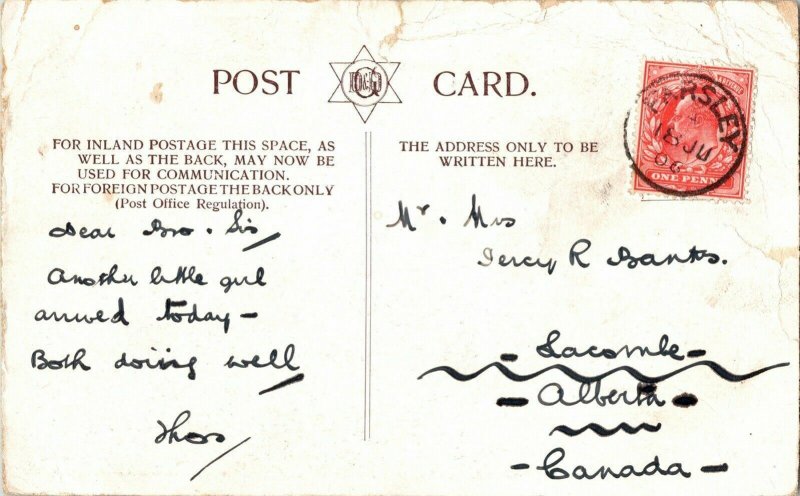 POST CARD.
D&G
FOR INLAND POSTAGE THIS SPACE, AS
WELL AS THE BACK, MAY NOW BE
USED FOR COMMUNICATION.
FOR FOREIGN POSTAGE THE BACK ONLY
(Post Office Regulation).
Dear Bro. Sis
Another little girl
arrived today -
Both doing well
Thos
THE ADDRESS ONLY TO BE
WRITTEN HERE.
Mr. Mrs
Percy R Banks.
- Lacombe -
- Alberta -
- Canada -
EARSLEY
18 JU
06
ONE PENNY